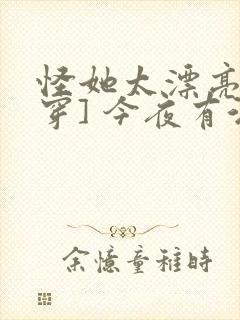 怪她太漂亮
穿]今夜有
余憶童稚時